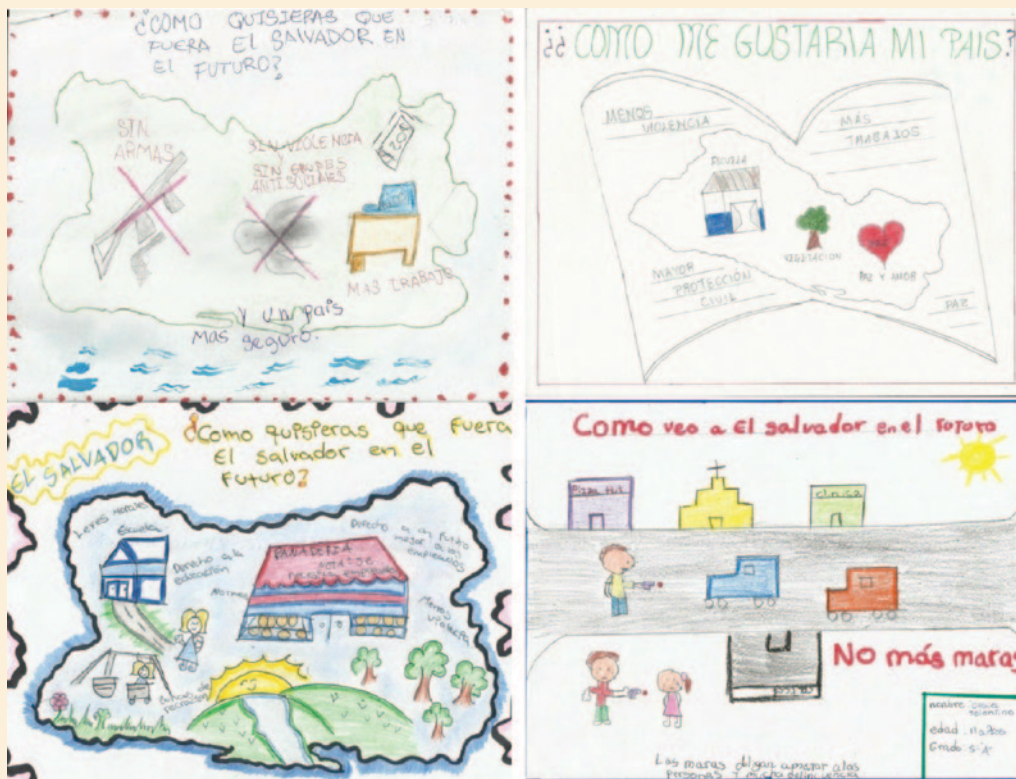 ¿COMO QUISIERAS QUE
FUERA EL SALVADOR EN
EL FUTURO?
SIN
ARMAS
SIN VIOLENCIA
Y
SIN GRUPOS
ANTISOCIALES
MAS TRABAJO
Y un pais
mas seguro.
¿¿COMO ME GUSTARIA MI PAIS?
MENOS
VIOLENCIA
MAS
TRABAJOS
ESCUELA
VEGETACION
PAZ
PAZ Y AMOR
MAYOR
PROTECCIÓN
CIVIL
PAZ
EL SALVADOR
¿Como quisieras que fuera
El salvador en el
Futuro?
Escuela
Derecho a la
educación
PANADERIA
Derecho a un
mejor
empleados
Menos
violencia
Como veo a El salvador en el Foturo
Pizza Hut
clinica
No más maras
nombre
edad
Grado 5ºA
Las maras dejan a las
personas y mucha delincuencia